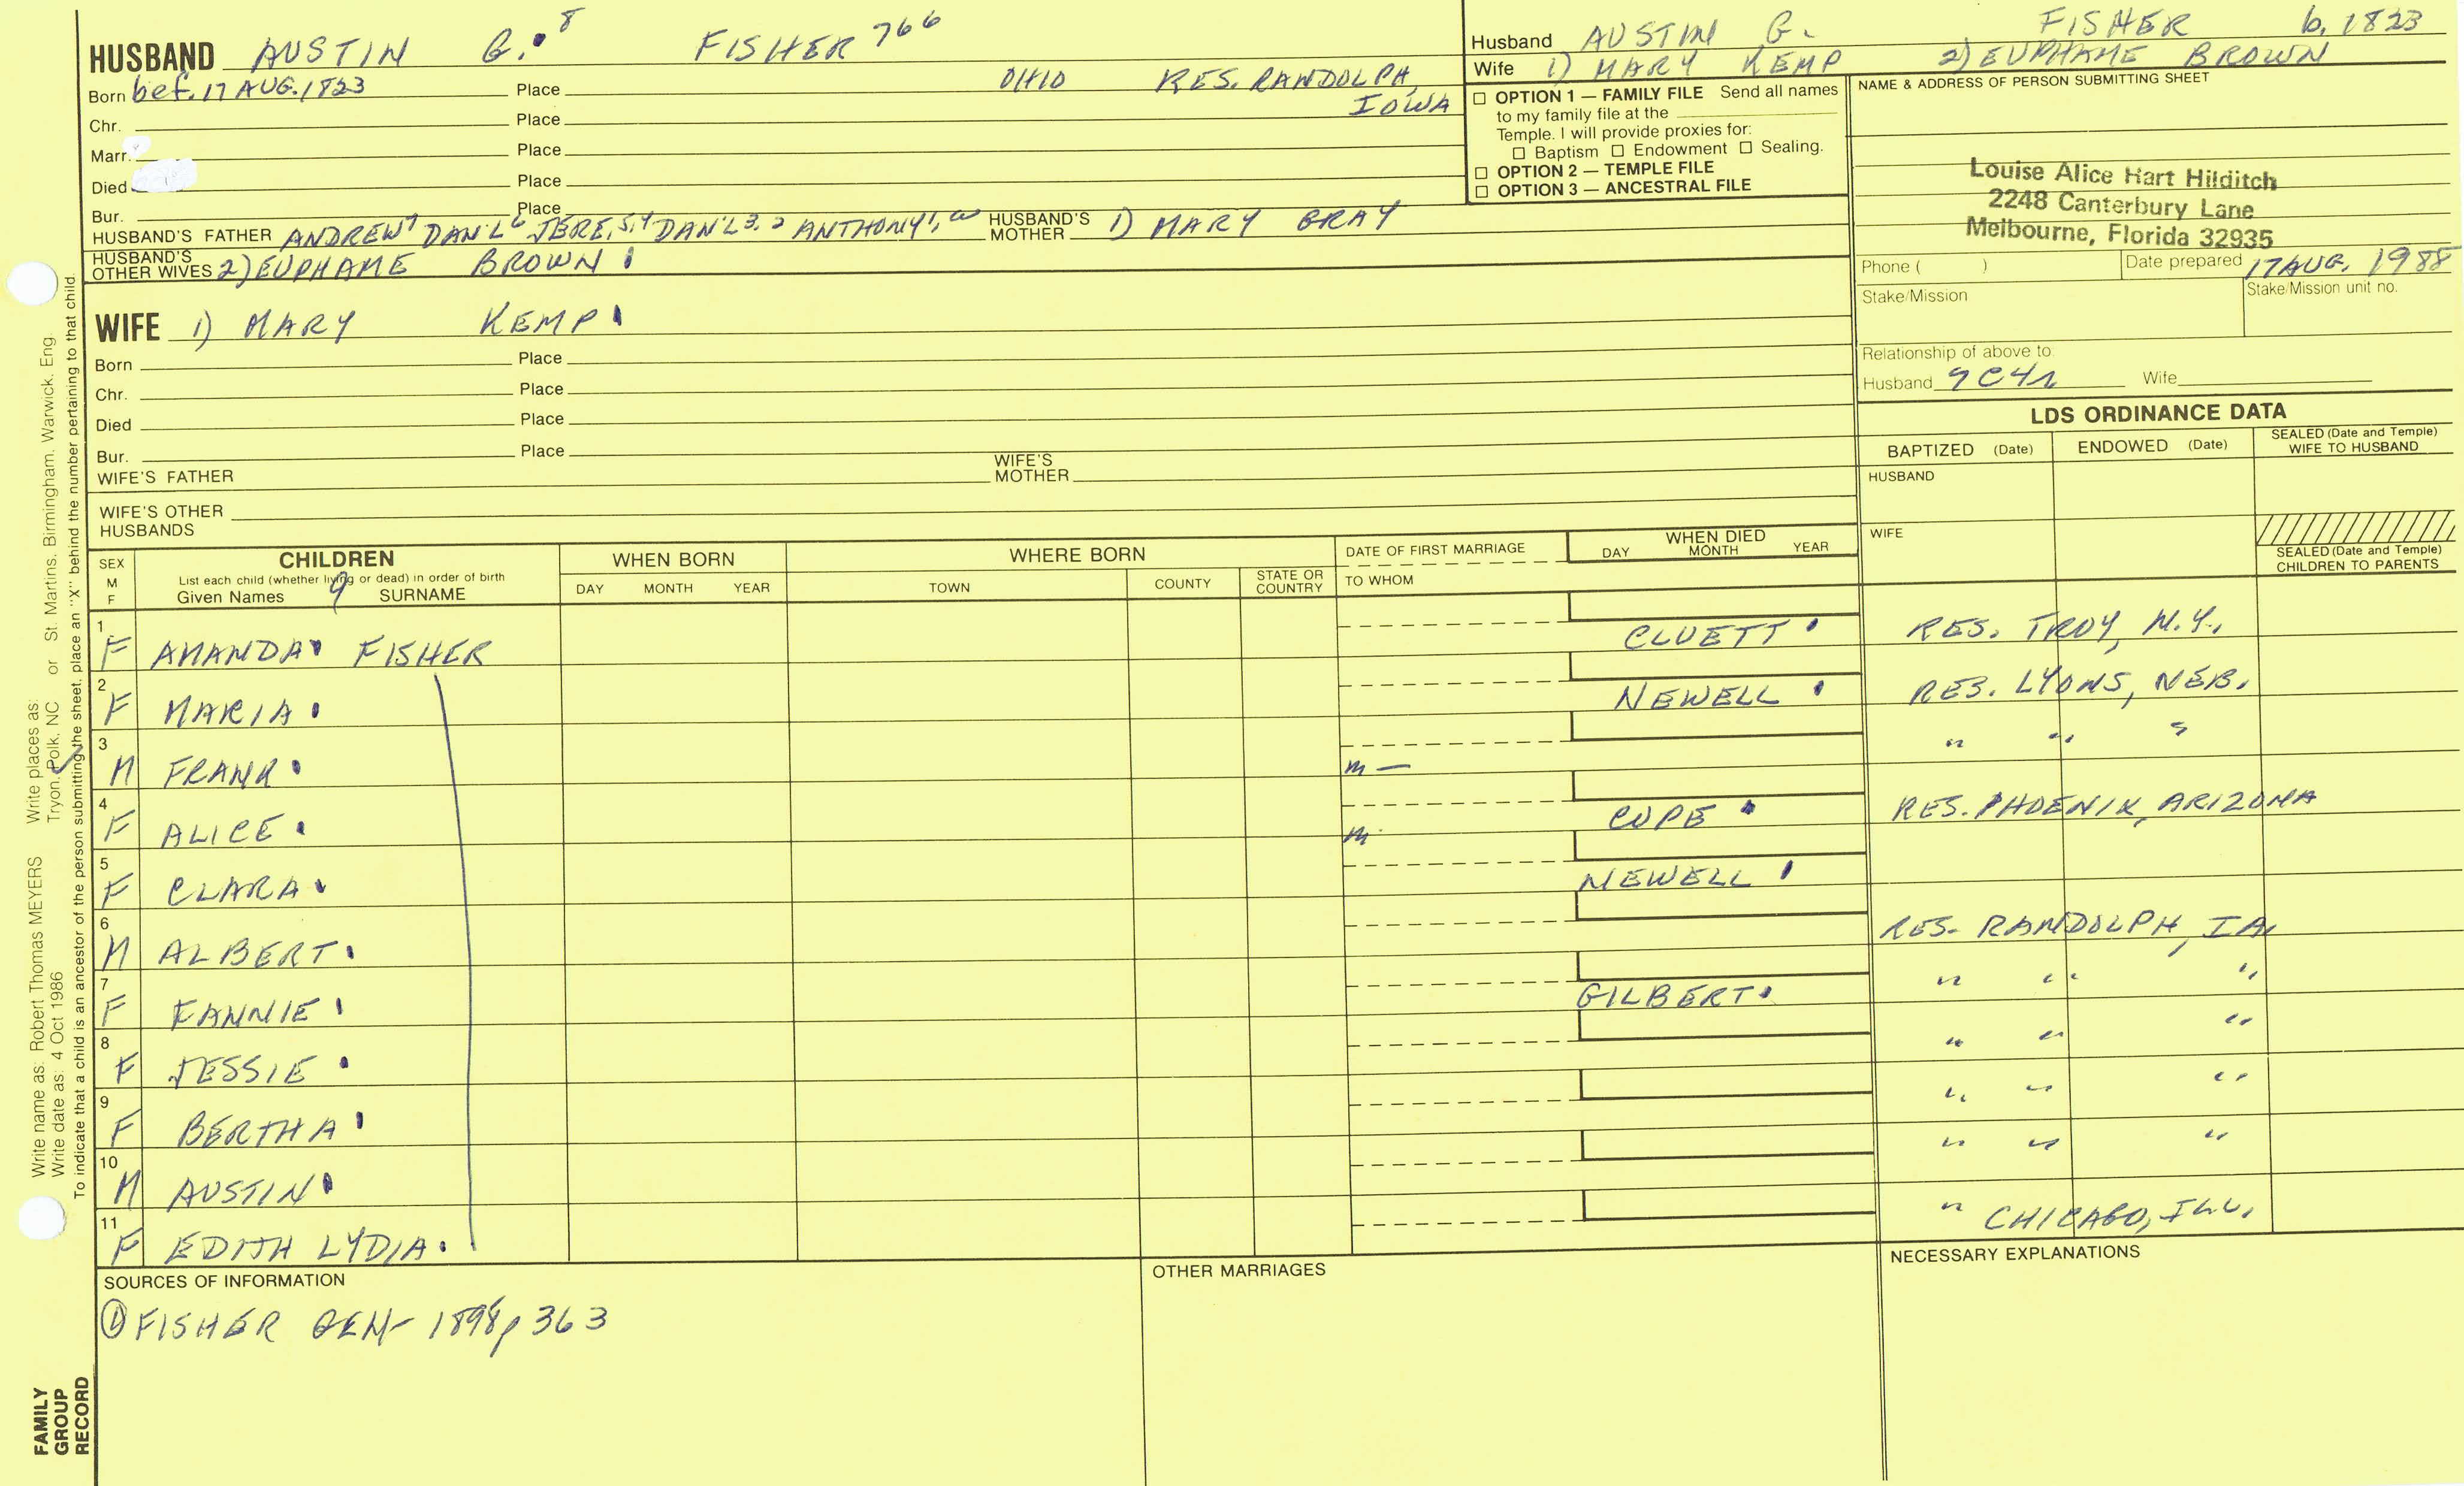 HUSBAND AUSTIN G.⁸ FISHER 766
Born bef. 17 AUG. 1823 Place OHIO RES. RANDOLPH, IOWA
Chr. Place
Marr. Place
Died Place
Bur. Place
HUSBAND'S FATHER ANDREW⁷ DAN'L⁶ JERE,⁵,⁴ DAN'L³,² ANTHONY¹, HUSBAND'S MOTHER 1) MARY GRAY
HUSBAND'S OTHER WIVES 2) EUPHAME BROWN
WIFE 1) MARY KEMP
Born Place
Chr. Place
Died Place
Bur. Place
WIFE'S FATHER WIFE'S MOTHER
WIFE'S OTHER HUSBANDS
Husband AUSTIN G. FISHER b. 1823
Wife 1) MARY KEMP 2) EUPHAME BROWN
☐ OPTION 1 — FAMILY FILE Send all names
to my family file at the
Temple. I will provide proxies for:
☐ Baptism ☐ Endowment ☐ Sealing.
☐ OPTION 2 — TEMPLE FILE
☐ OPTION 3 — ANCESTRAL FILE
NAME & ADDRESS OF PERSON SUBMITTING SHEET
Louise Alice Hart Hilditch
2248 Canterbury Lane
Melbourne, Florida 32935
Phone ( ) Date prepared 17 AUG. 1988
Stake/Mission Stake/Mission unit no.
Relationship of above to
Husband 9C4r Wife
LDS ORDINANCE DATA
BAPTIZED (Date) ENDOWED (Date) SEALED (Date and Temple) WIFE TO HUSBAND
HUSBAND
WIFE
SEALED (Date and Temple) CHILDREN TO PARENTS
SEX M F CHILDREN WHEN BORN WHERE BORN DATE OF FIRST MARRIAGE WHEN DIED
List each child (whether living or dead) in order of birth
Given Names 9 SURNAME DAY MONTH YEAR TOWN COUNTY STATE OR COUNTRY TO WHOM DAY MONTH YEAR
1 F AMANDA FISHER CLUETT RES. TROY, N.Y.,
2 F MARIA NEWELL RES. LYONS, NEB.
3 M FRANK m — " " "
4 F ALICE m. COPE RES. PHOENIX, ARIZONA
5 F CLARA NEWELL
6 M ALBERT RES. RANDOLPH, IA.
7 F FANNIE GILBERT " " "
8 F JESSIE " " "
9 F BERTHA " " "
10 M AUSTIN " " "
11 F EDITH LYDIA " CHICAGO, ILL.
SOURCES OF INFORMATION
① FISHER GEN- 1898 p 363
OTHER MARRIAGES
NECESSARY EXPLANATIONS
Write name as: Robert Thomas MEYERS Write places as:
Write date as: 4 Oct 1986 Tryon, Polk, NC or St. Martins, Birmingham, Warwick, Eng.
To indicate that a child is an ancestor of the person submitting the sheet, place an "X" behind the number pertaining to that child.
FAMILY
GROUP
RECORD